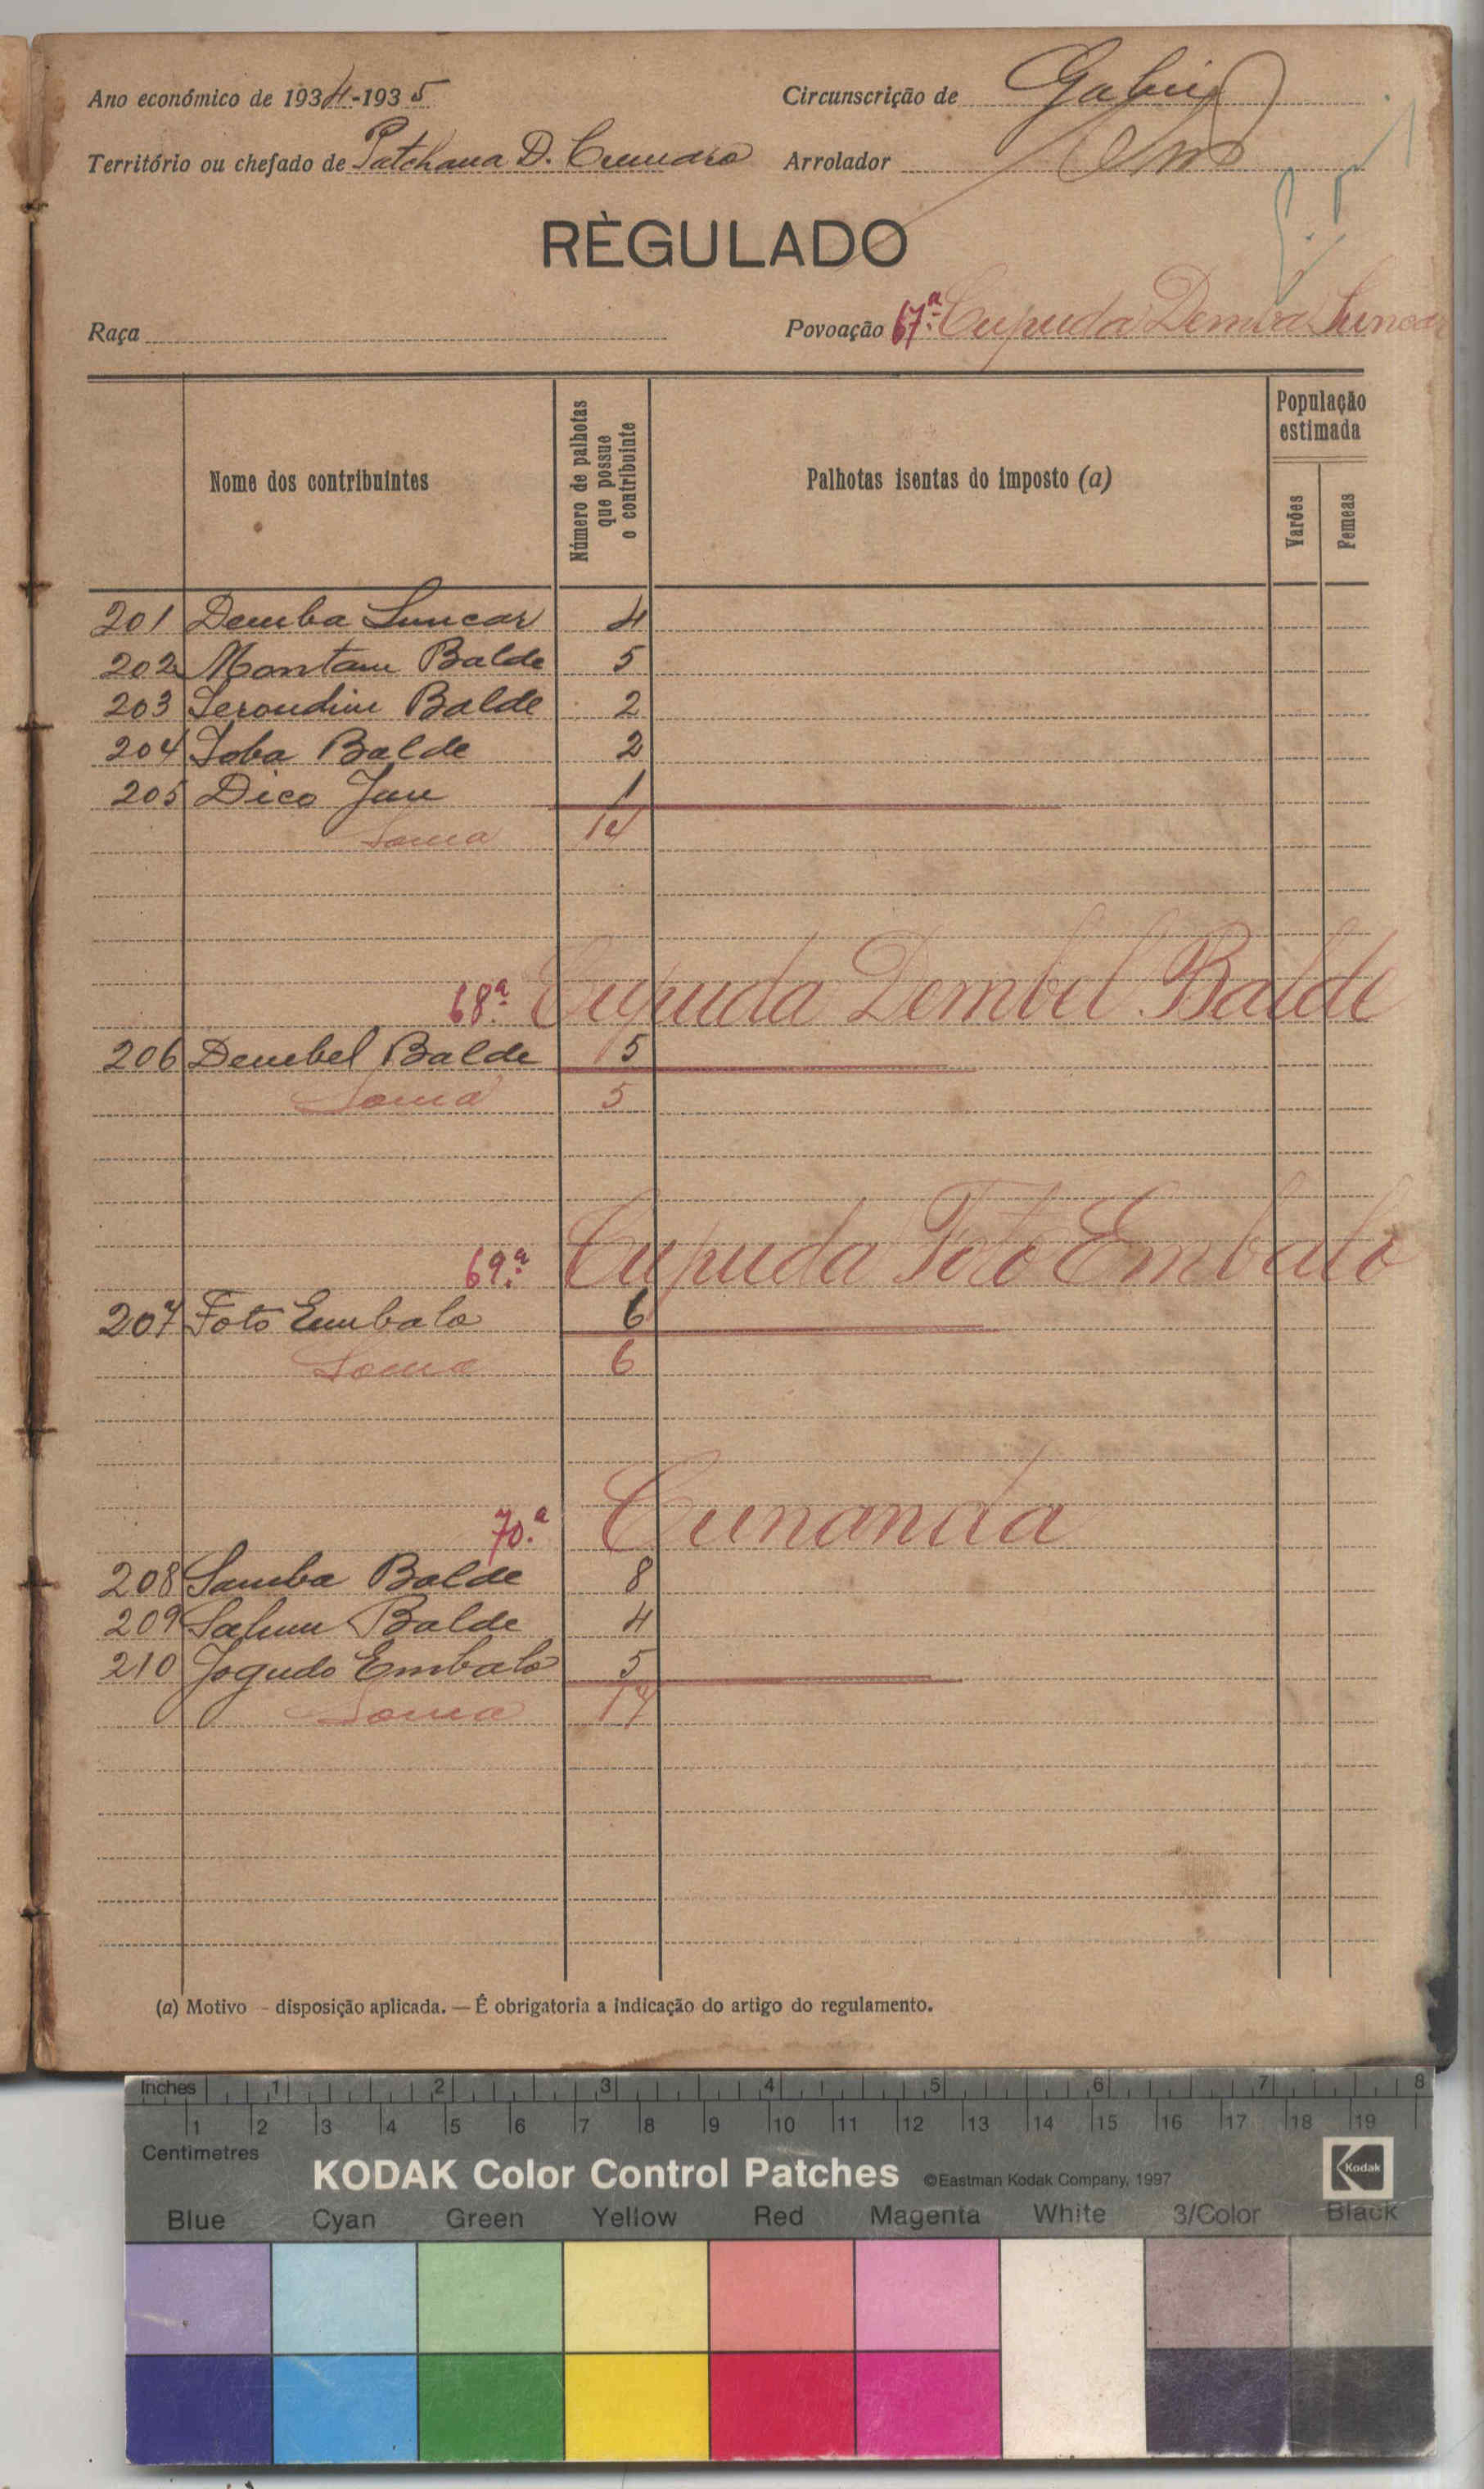 Ano económico de 1934-1935 Circunscrição de Gabú
Território ou chefado de Patchana D. Arrolador
RÈGULADO
Raça Povoação 67.ª Cupuda Demba Suncar
Nome dos contribuintes
Número de palhotas que possue o contribuinte
Palhotas isentas do imposto (a)
População estimada
Varões
Femeas
201 Demba Suncar 4
202 Montam Balde 5
203 Balde 2
204 Balde 2
205 Dico Jau 1
Soma 14
68.ª Cupuda Dembel Balde
206 Dembel Balde 5
Soma 5
69.ª Cupuda Foto Embalo
207 Foto Embalo 6
Soma 6
70.ª Cunanda
208 Samba Balde 8
209 Balde 4
210 Jogudo Embalo 5
Soma 17
(a) Motivo - disposição aplicada. — É obrigatoria a indicação do artigo do regulamento.
Inches 1 2 3 4 5 6 7 8
1 2 3 4 5 6 7 8 9 10 11 12 13 14 15 16 17 18 19
Centimetres
KODAK Color Control Patches ©Eastman Kodak Company, 1997 Kodak
Blue Cyan Green Yellow Red Magenta White 3/Color Black